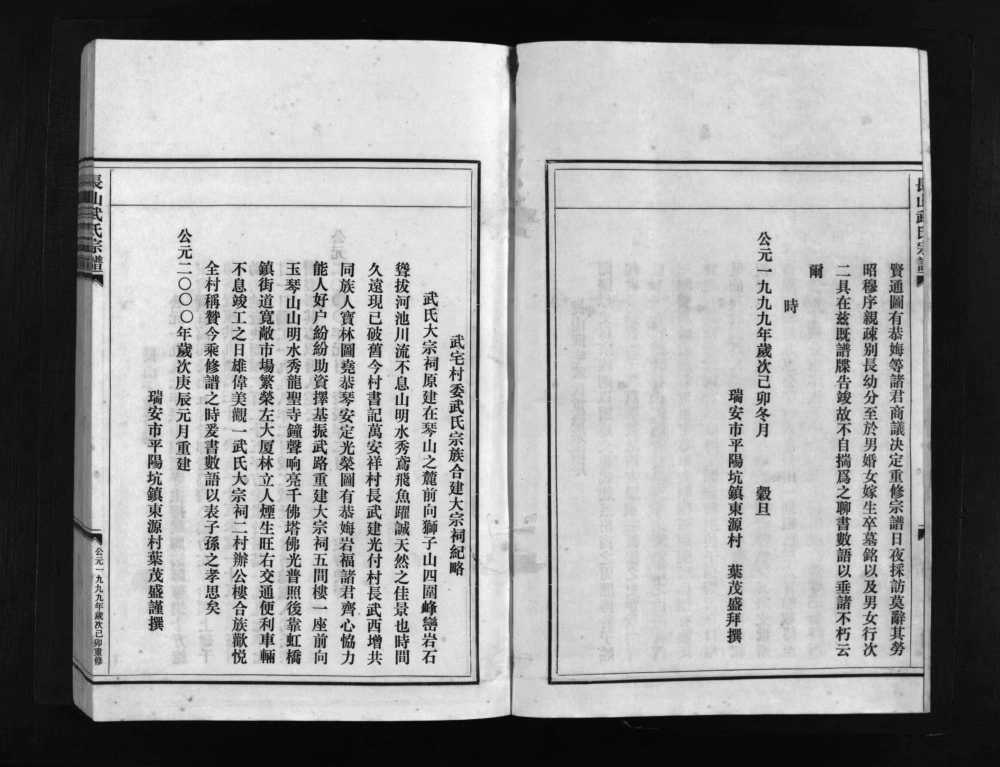 長山武氏宗譜
賢通圖有恭娒等諸君商議決定重修宗譜日夜採訪莫辭其勞
昭穆序親疎別長幼分至於男婚女嫁生卒墓銘以及男女行次
二具在兹既譜牒告竣故不自揣爲之聊書數語以垂諸不朽云
爾
時
公元一九九九年歲次己卯冬月 穀旦
瑞安市平陽坑鎮東源村 葉茂盛拜撰
武宅村委武氏宗族合建大宗祠紀略
武氏大宗祠原建在琴山之麓前向獅子山四圍峰巒岩石
聳拔河池川流不息山明水秀鳶飛魚躍誠天然之佳景也時間
久遠現已破舊今村書記萬安祥村長武建光付村長武西增共
同族人寶林圖堯恭琴安定光榮圖有恭娒岩福諸君齊心協力
能人好户紛紛助資擇基振武路重建大宗祠五間樓一座前向
玉琴山山明水秀龍聖寺鐘聲响亮千佛塔佛光普照後靠虹橋
鎮街道寬敞市場繁榮左大厦林立人煙生旺右交通便利車輛
不息竣工之日雄偉美觀一武氏大宗祠二村辦公樓合族歡悦
全村稱贊今乘修譜之時爰書數語以表子孫之孝思矣
公元二〇〇〇年歲次庚辰元月重建
瑞安市平陽坑鎮東源村葉茂盛謹撰
長山武氏宗譜
公元一九九九年歲次己卯重修